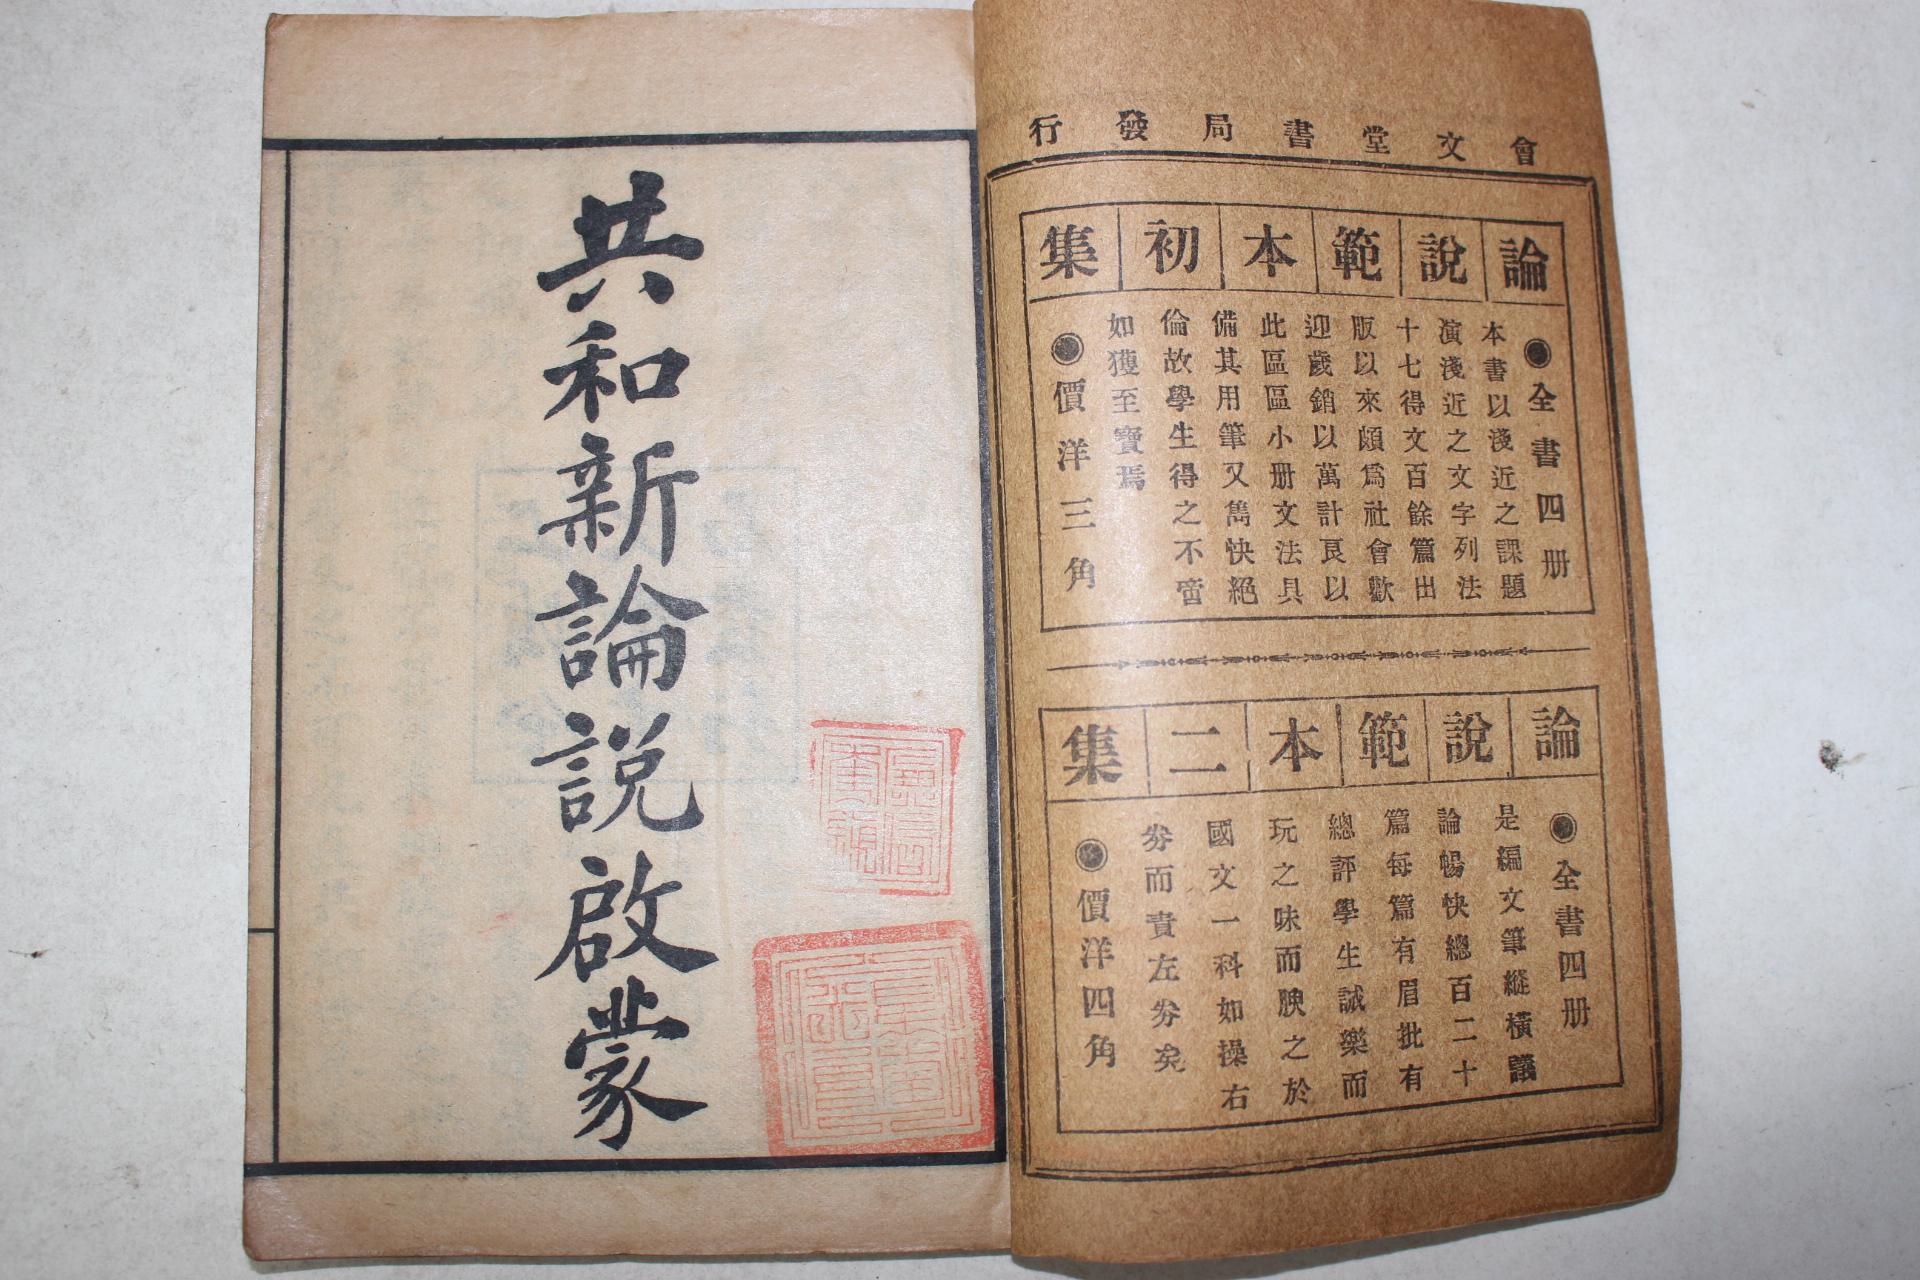 會文堂書局發行
論說範本初集
●全書四册
本書以淺近之課題
演淺近之文字列法
十七得文百餘篇出
版以來頗爲社會歡
迎歲銷以萬計良以
此區區小册文法具
備其用筆又雋快絕
倫故學生得之不啻
如獲至寶焉
●價洋三角
論說範本二集
●全書四册
是編文筆縱橫議
論暢快總百二十
篇每篇有眉批有
總評學生誠樂而
玩之味而腴之於
國文一科如操右
劵而責左劵矣
●價洋四角
共和新論說啟蒙